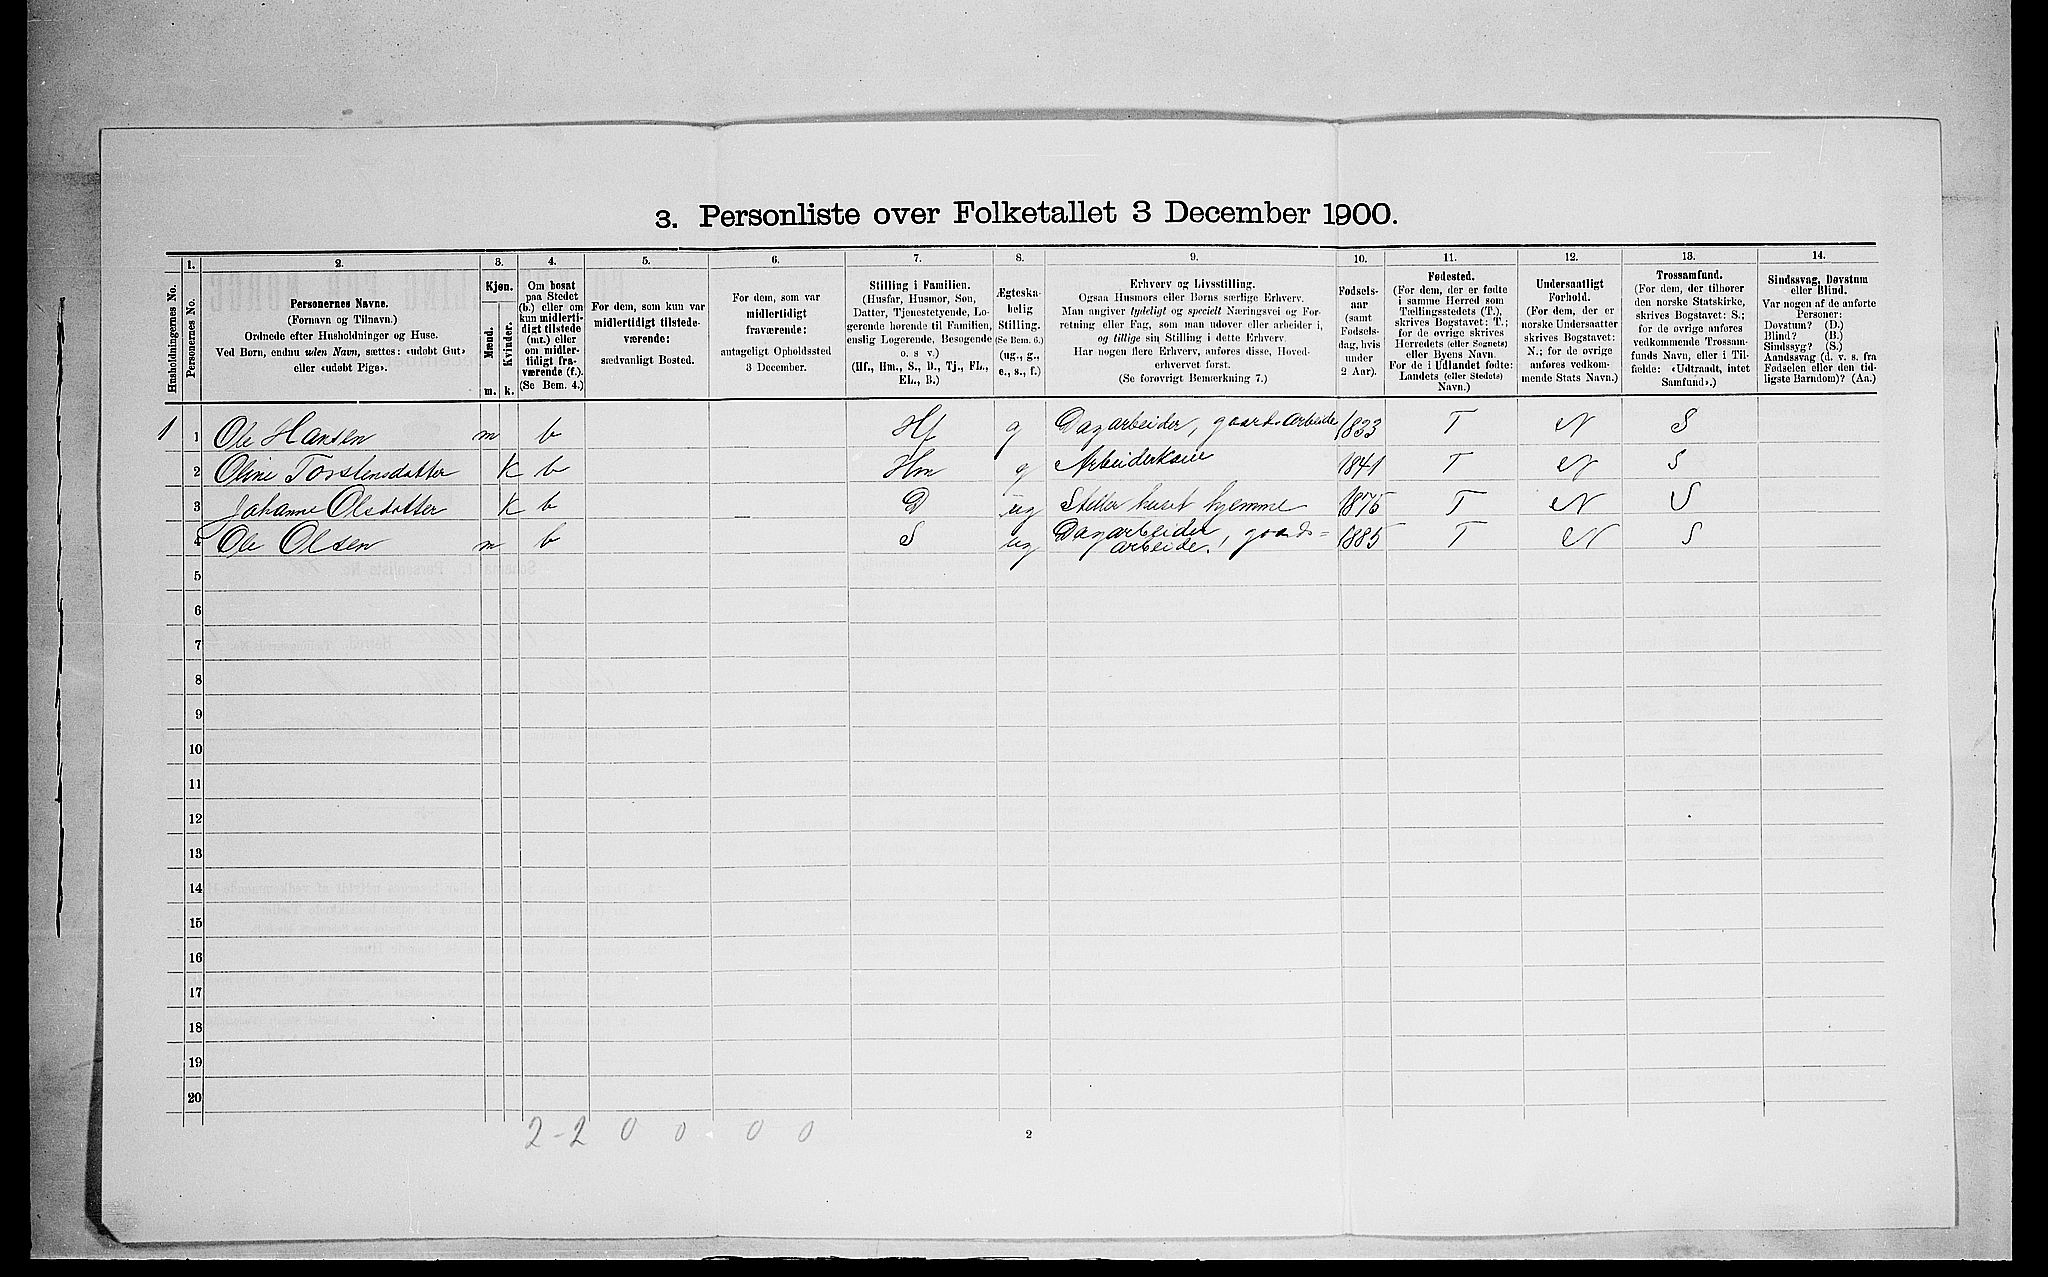 3. Personliste over Folketallet 3 December 1900.
1. 2. 3. 4. 5. 6. 7. 8. 9. 10. 11. 12. 13. 14.
Husholdningernes No.
Personernes No.
Personernes Navne.
(Fornavn og Tilnavn.)
Ordnede efter Husholdninger og Huse.
Ved Børn, endnu uden Navn, sættes: «udøbt Gut»
eller «udøbt Pige».
Kjøn.
Mænd.
Kvinder.
m. k.
Om bosat
paa Stedet
(b.) eller om
kun midlerti-
digt tilstede
(mt.) eller
om midler-
tidigt fra-
værende (f.).
(Se Bem. 4.)
For dem, som kun var
midlertidigt tilstede-
værende:
sædvanligt Bosted.
For dem, som var
midlertidigt
fraværende:
antageligt Opholdssted
3 December.
Stilling i Familien.
(Husfar, Husmor, Søn,
Datter, Tjenestetyende, Lo-
gerende hørende til Familien,
enslig Logerende, Besøgende
o. s v.)
(Hf., Hm., S., D., Tj., FL.,
EL., B.)
Ægteska-
belig
Stilling.
(Se Bem. 6.)
(ug., g.,
e., s., f.)
Erhverv og Livsstilling.
Ogsaa Husmors eller Børns særlige Erhverv.
Man angiver tydeligt og specielt Næringsvei og For-
retning eller Fag, som man udøver eller arbeider i,
og tillige sin Stilling i dette Erhverv.
Har nogen flere Erhverv, anføres disse, Hoved-
erhvervet først.
(Se forøvrigt Bemærkning 7.)
Fødsels-
aar
(samt
Fødsels-
dag, hvis
under
2 Aar).
Fødested.
(For dem, der er fødte
i samme Herred som
Tællingsstedets (T.),
skrives Bogstavet: T.;
for de øvrige skrives
Herredets (eller Sognets)
eller Byens Navn.
For de i Udlandet fødte:
Landets (eller Stedets)
Navn.)
Undersaatligt
Forhold.
(For dem, der er
norske Undersaatter
skrives Bogstavet:
N.; for de øvrige
anføres vedkom-
mende Stats Navn.)
Trossamfund.
(For dem, der tilhører
den norske Statskirke,
skrives Bogstavet: S.;
for de øvrige anføres
vedkommende Trossam-
funds Navn, eller i Til-
fælde: «Udtraadt, intet
Samfund».)
Sindssvag, Døvstum
eller Blind.
Var nogen af de anførte
Personer:
Døvstum? (D.)
Blind? (B.)
Sindssyg? (S.)
Aandssvag (d. v. s. fra
Fødselen eller den tid-
ligste Barndom)? (Aa.)
1 1 Ole Hansen m b Hf g Dagarbeider, gaardsarbeide 1833 T N S
2 Oline Torstensdatter k b Hm g Arbeiderkone 1841 T N S
3 Johanne Olsdatter k b D ug Steller huset hjemme 1875 T N S
4 Ole Olsen m b S ug Dagarbeider, gaards= 1885 T N S
arbeide.
5
6
7
8
9
10
11
12
13
14
15
16
17
18
19
20
2-2 0 0 0 0
2